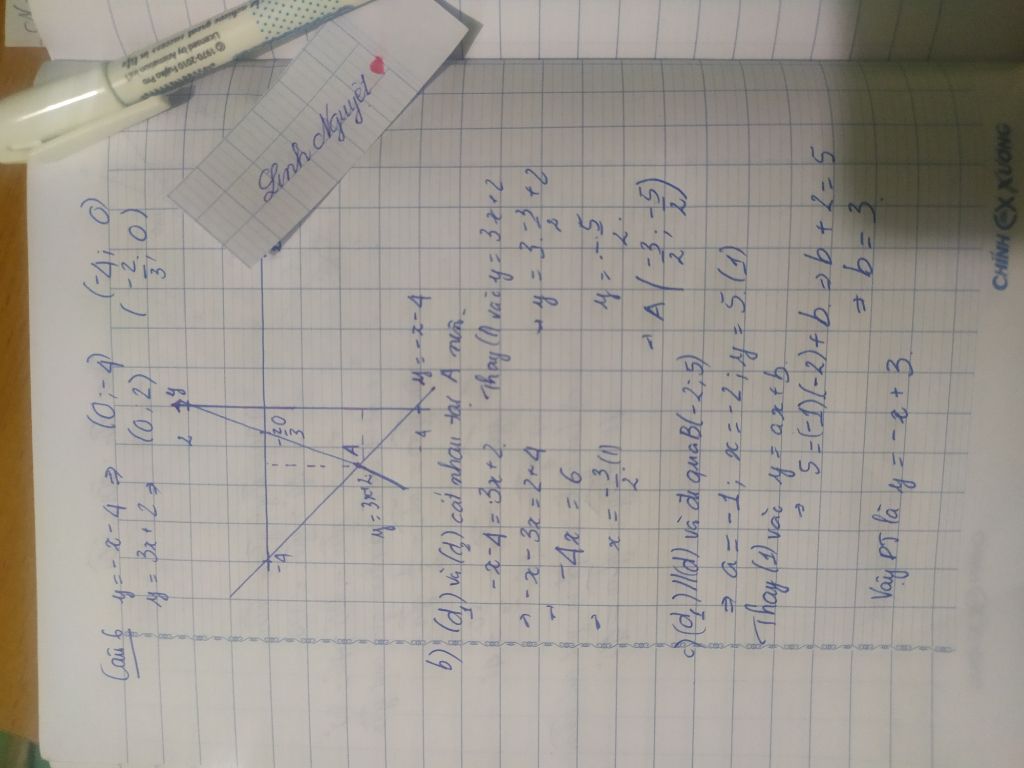 Câu 6 y = -x - 4 ⇒ (0; -4) (-4; 0)
y = 3x + 2 ⇒ (0; 2) (-2/3; 0)
y
2
-4
-2/3
O
A
y = 3x+2
-4
y = -x - 4
b) (d1) vì (d1) cắt nhau tại A nên
-x - 4 = 3x + 2
⇒ -x - 3x = 2 + 4
→ -4x = 6
→ x = -3/2 (1)
Thay (1) vào y = 3x + 2
→ y = 3 . -3/2 + 2
y = -5/2
→ A (-3/2 ; -5/2)
c) (d1) // (d) và đi qua B(-2; 5)
⇒ a = -1; x = -2; y = 5 (1)
Thay (1) vào y = ax + b
⇒ 5 = (-1)(-2) + b ⇒ b + 2 = 5
⇒ b = 3
Vậy PT là y = -x + 3
Linh Nguyệt
CHÍNH XƯƠNG
© 1970-2010
Licensed by